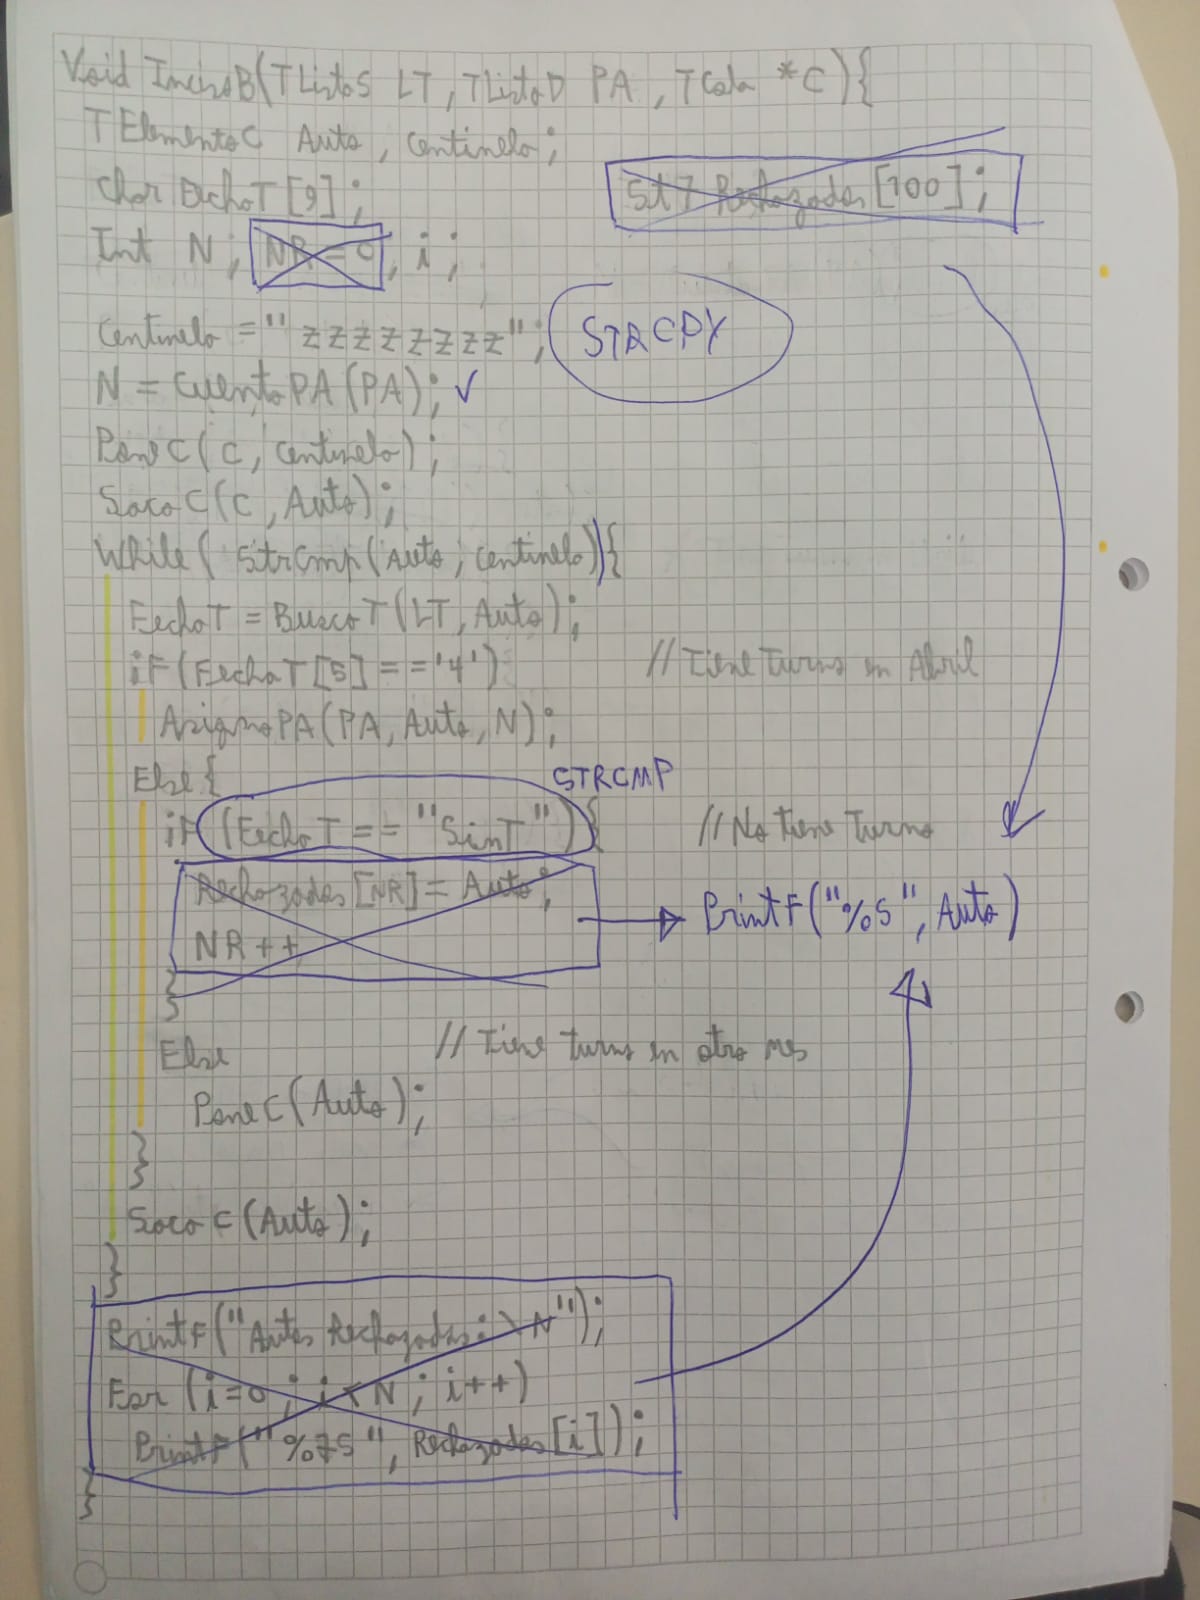 Void IncisoB(TListaS LT, TListaD PA, TCola *C){
TElementoC Auto, Centinela;
Char FechaT[9];
St7 Rechazados[100];
Int N, NR=0, i;
Centinela = "zzzzzzzz";
STRCPY
N = CuentaPA(PA); ✓
PoneC(C, Centinela);
SacaC(C, Auto);
While( StrCmp(Auto, Centinela)){
FechaT = BuscaT(LT, Auto);
iF(FechaT[5]=='4') // Tiene Turno en Abril
AsignaPA(PA, Auto, N);
Else{
STRCMP
iF (FechaT == "SinT"){ // No Tiene Turno
Rechazados[NR] = Auto;
NR++
PrintF("%S", Auto)
}
Else // Tiene turno en otro mes
PoneC(Auto);
}
SacaC(Auto);
}
PrintF("Autos Rechazados: \N");
For (i=0; i<N; i++)
PrintF("%7S", Rechazados[i]);
}